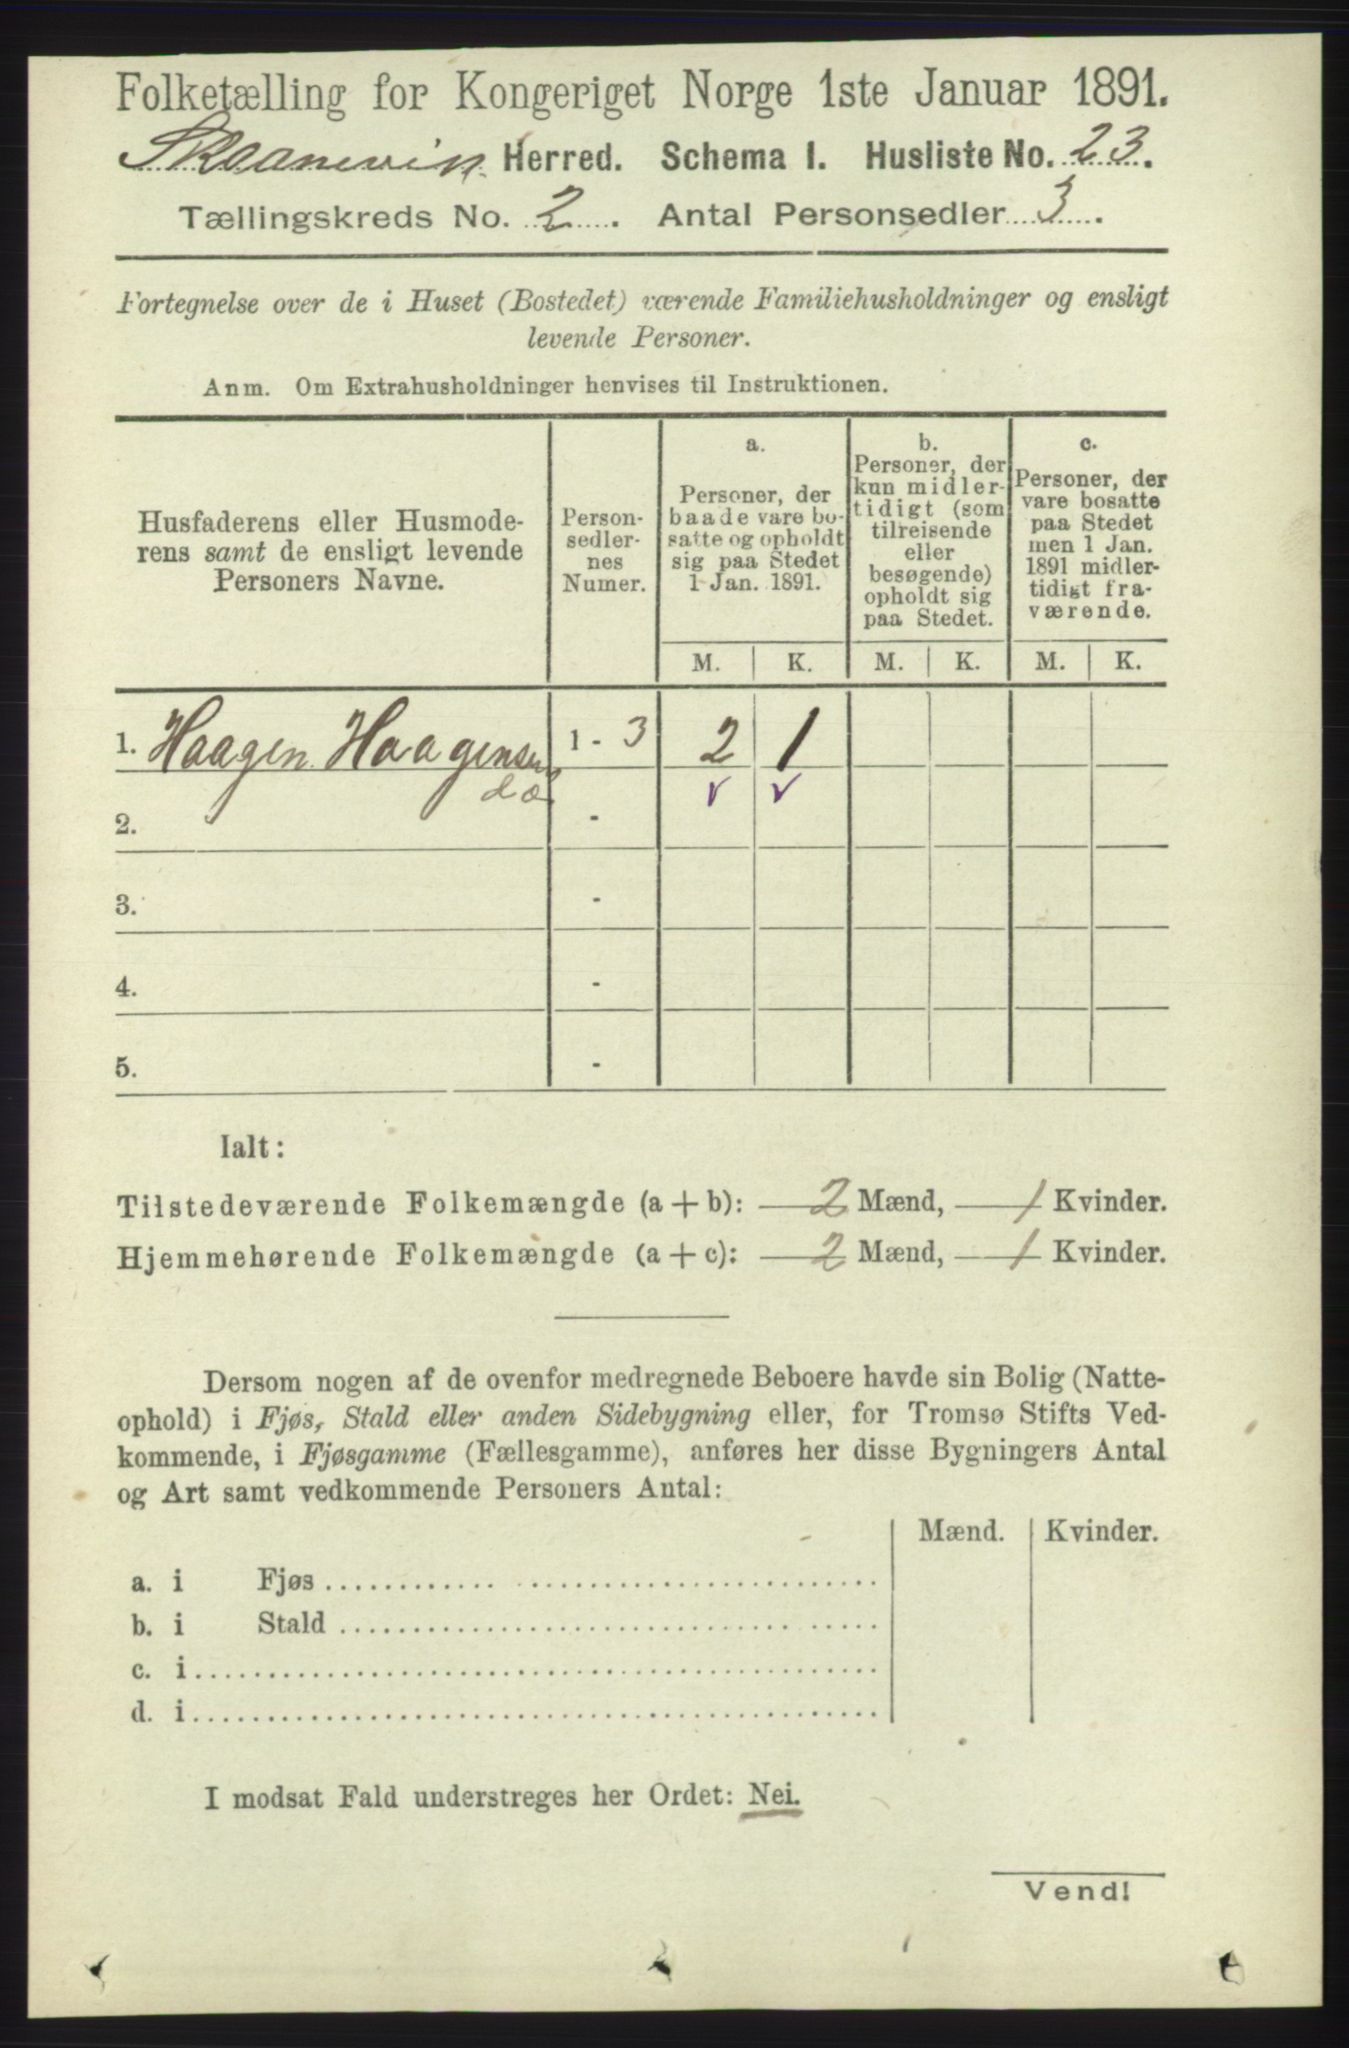 Folketælling for Kongeriget Norge 1ste Januar 1891.
Skaanevik Herred. Schema I. Husliste No. 23.
Tællingskreds No. 2. Antal Personsedler 3.
Fortegnelse over de i Huset (Bostedet) værende Familiehusholdninger og ensligt
levende Personer.
Anm. Om Extrahusholdninger henvises til Instruktionen.
Husfaderens eller Husmode-
rens samt de ensligt levende
Personers Navne.
Person-
sedler-
nes
Numer.
a.
Personer, der
baade vare bo-
satte og opholdt
sig paa Stedet
1 Jan. 1891.
b.
Personer, der
kun midler-
tidigt (som
tilreisende
eller
besøgende)
opholdt sig
paa Stedet.
c.
Personer, der
vare bosatte
paa Stedet
men 1 Jan.
1891 midler-
tidigt fra-
værende.
M. K. M. K. M. K.
1. Haagen Haagensen 1 - 3 2 1
2. -
3. -
4. -
5. -
Ialt:
Tilstedeværende Folkemængde (a + b): 2 Mænd, 1 Kvinder.
Hjemmehørende Folkemængde (a + c): 2 Mænd, 1 Kvinder.
Dersom nogen af de ovenfor medregnede Beboere havde sin Bolig (Natte-
ophold) i Fjøs, Stald eller anden Sidebygning eller, for Tromsø Stifts Ved-
kommende, i Fjøsgamme (Fællesgamme), anføres her disse Bygningers Antal
og Art samt vedkommende Personers Antal:
Mænd. Kvinder.
a. i Fjøs
b. i Stald
c. i
d. i
I modsat Fald understreges her Ordet: Nei.
Vend!